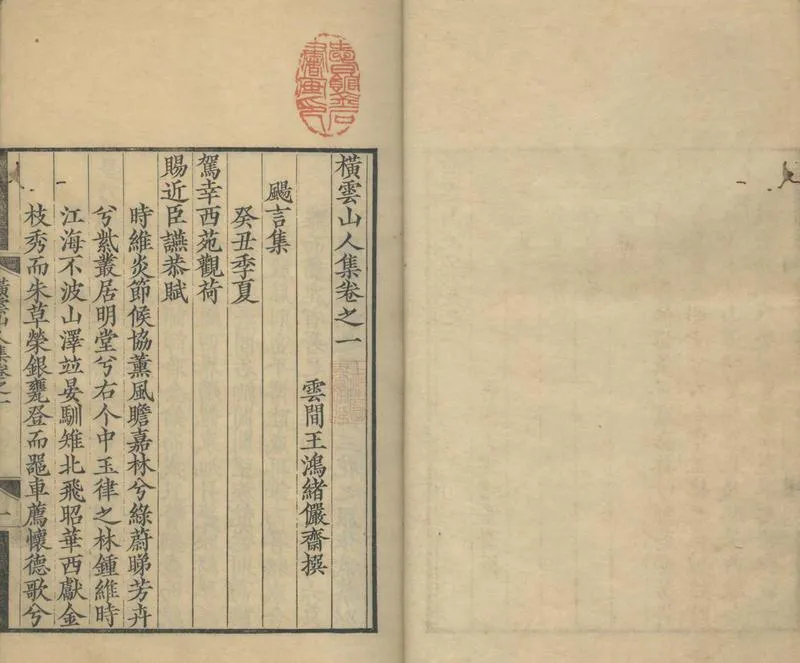 橫雲山人集卷之一
雲間王鴻緒儼齋撰
颺言集
癸丑季夏
駕幸西苑觀荷
賜近臣讌恭賦
時維炎節候協薰風瞻嘉林兮綠蔚睇芳卉
兮紫叢居明堂兮右个中玉律之林鍾維時
江海不波山澤竝晏馴雉北飛昭華西獻金
枝秀而朱草榮銀甕登而噐車薦懷德歌兮
橫雲山人集卷之一
一